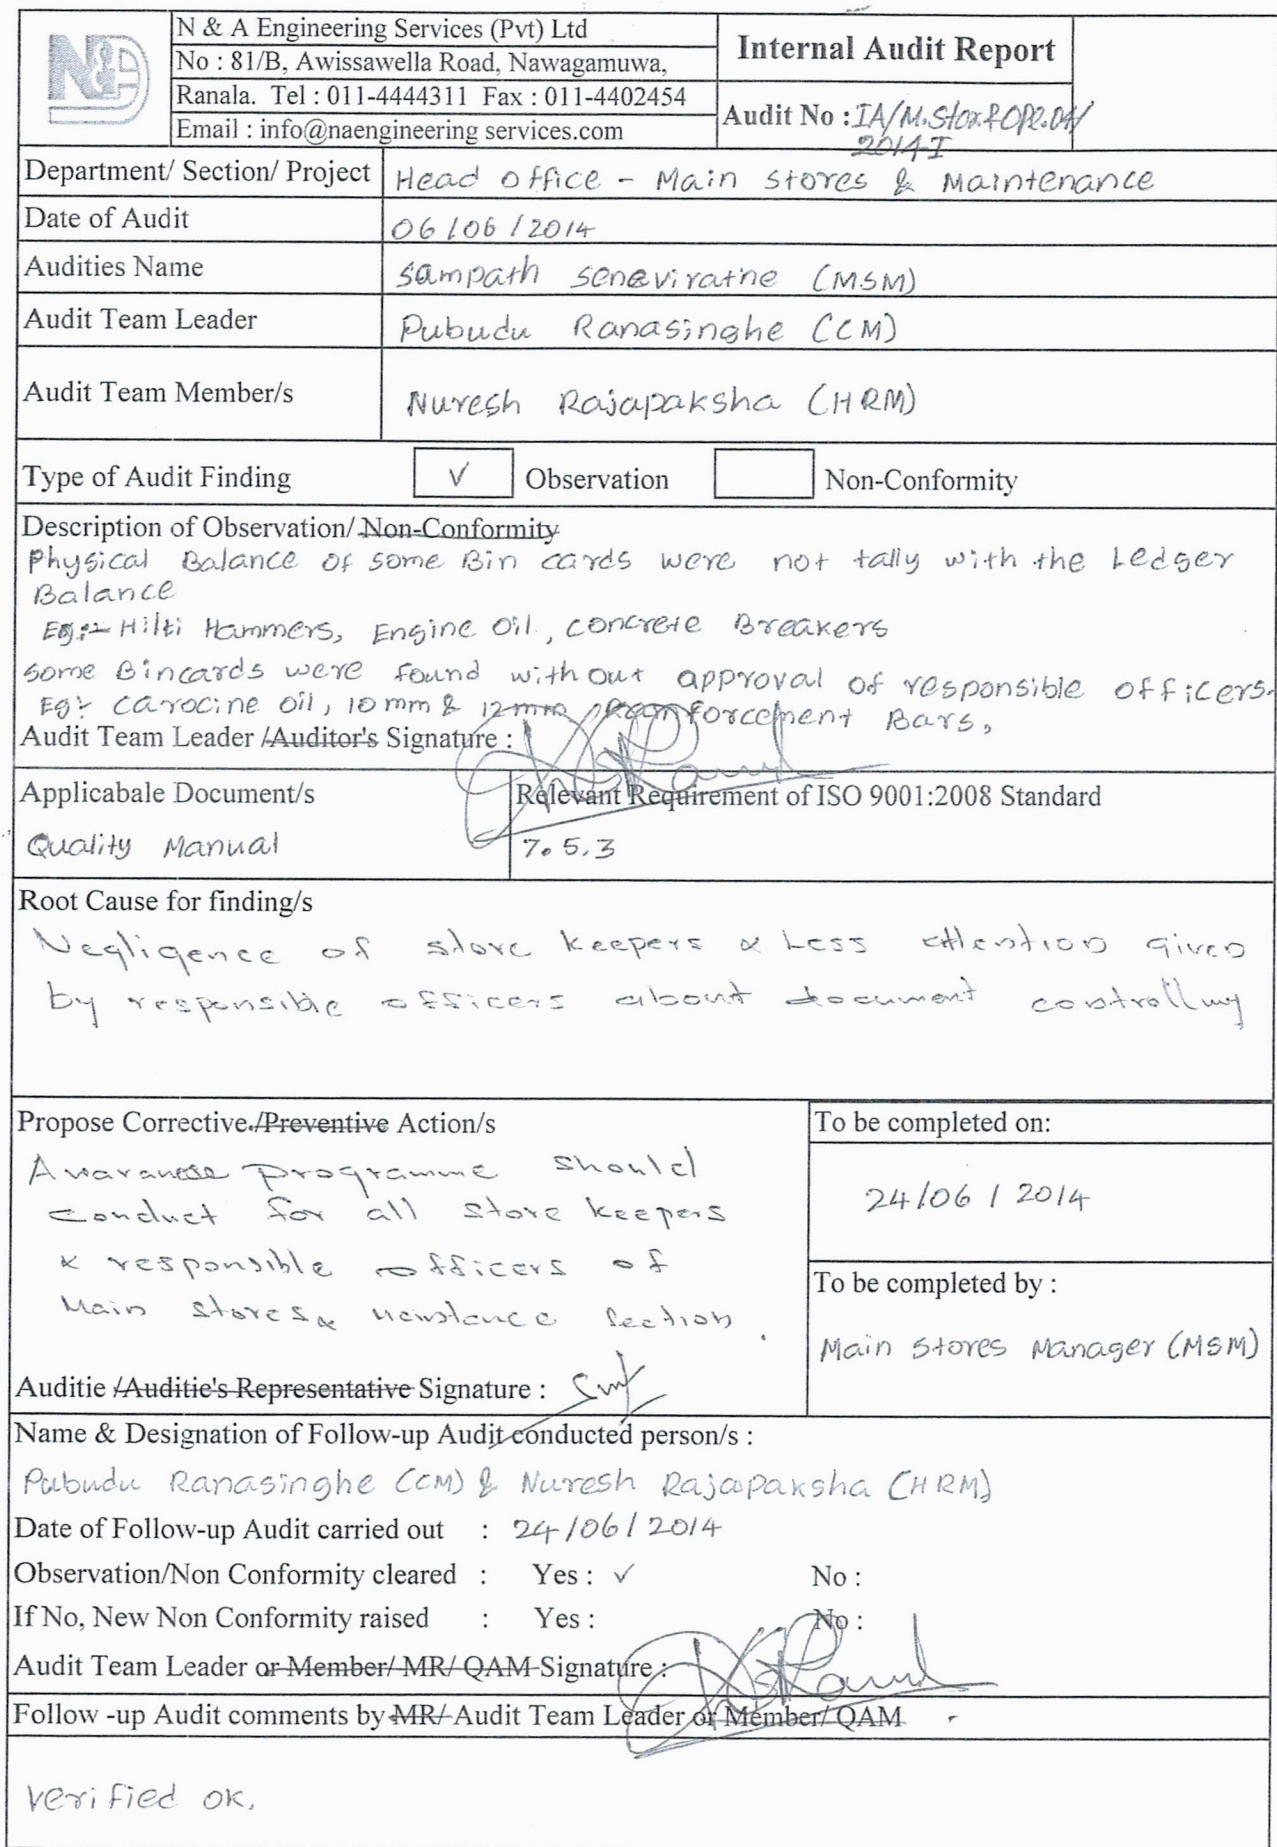 N&E
N & A Engineering Services (Pvt) Ltd
No : 81/B, Awissawella Road, Nawagamuwa,
Ranala. Tel : 011-4444311 Fax : 011-4402454
Email : info@naengineering services.com
Internal Audit Report
Audit No : IA/M.Stor&OPE.04/
2014-I
Department/ Section/ Project Head office - Main stores & Maintenance
Date of Audit 06/06/2014
Audities Name Sampath Seneviratne (MSM)
Audit Team Leader Pubudu Ranasinghe (CCM)
Audit Team Member/s Nuresh Rajapaksha (HRM)
Type of Audit Finding √ Observation Non-Conformity
Description of Observation/ Non-Conformity
Physical Balance of some Bin cards were not tally with the Ledger
Balance
Eg:- Hilti Hammers, Engine Oil, concrete Breakers
Some Bincards were found without approval of responsible officers.
Eg:- carocine oil, 10mm & 12mm forcement Bars,
Audit Team Leader /Auditor's Signature :
Applicabale Document/s
Quality Manual
Relevant Requirement of ISO 9001:2008 Standard
7.5.3
Root Cause for finding/s
Negligence of store keepers & Less attention given
by responsible officers about document controlling
Propose Corrective./Preventive Action/s
Awaranese programme should
conduct for all store keepers
& responsible officers of
Main stores & section.
Auditie /Auditie's Representative Signature :
To be completed on:
24/06/2014
To be completed by :
Main Stores Manager (MSM)
Name & Designation of Follow-up Audit conducted person/s :
Pubudu Ranasinghe (CCM) & Nuresh Rajapaksha (HRM)
Date of Follow-up Audit carried out : 24/06/2014
Observation/Non Conformity cleared : Yes : √ No :
If No, New Non Conformity raised : Yes : No :
Audit Team Leader or Member/ MR/ QAM Signature :
Follow -up Audit comments by MR/ Audit Team Leader or Member/ QAM
verified ok.